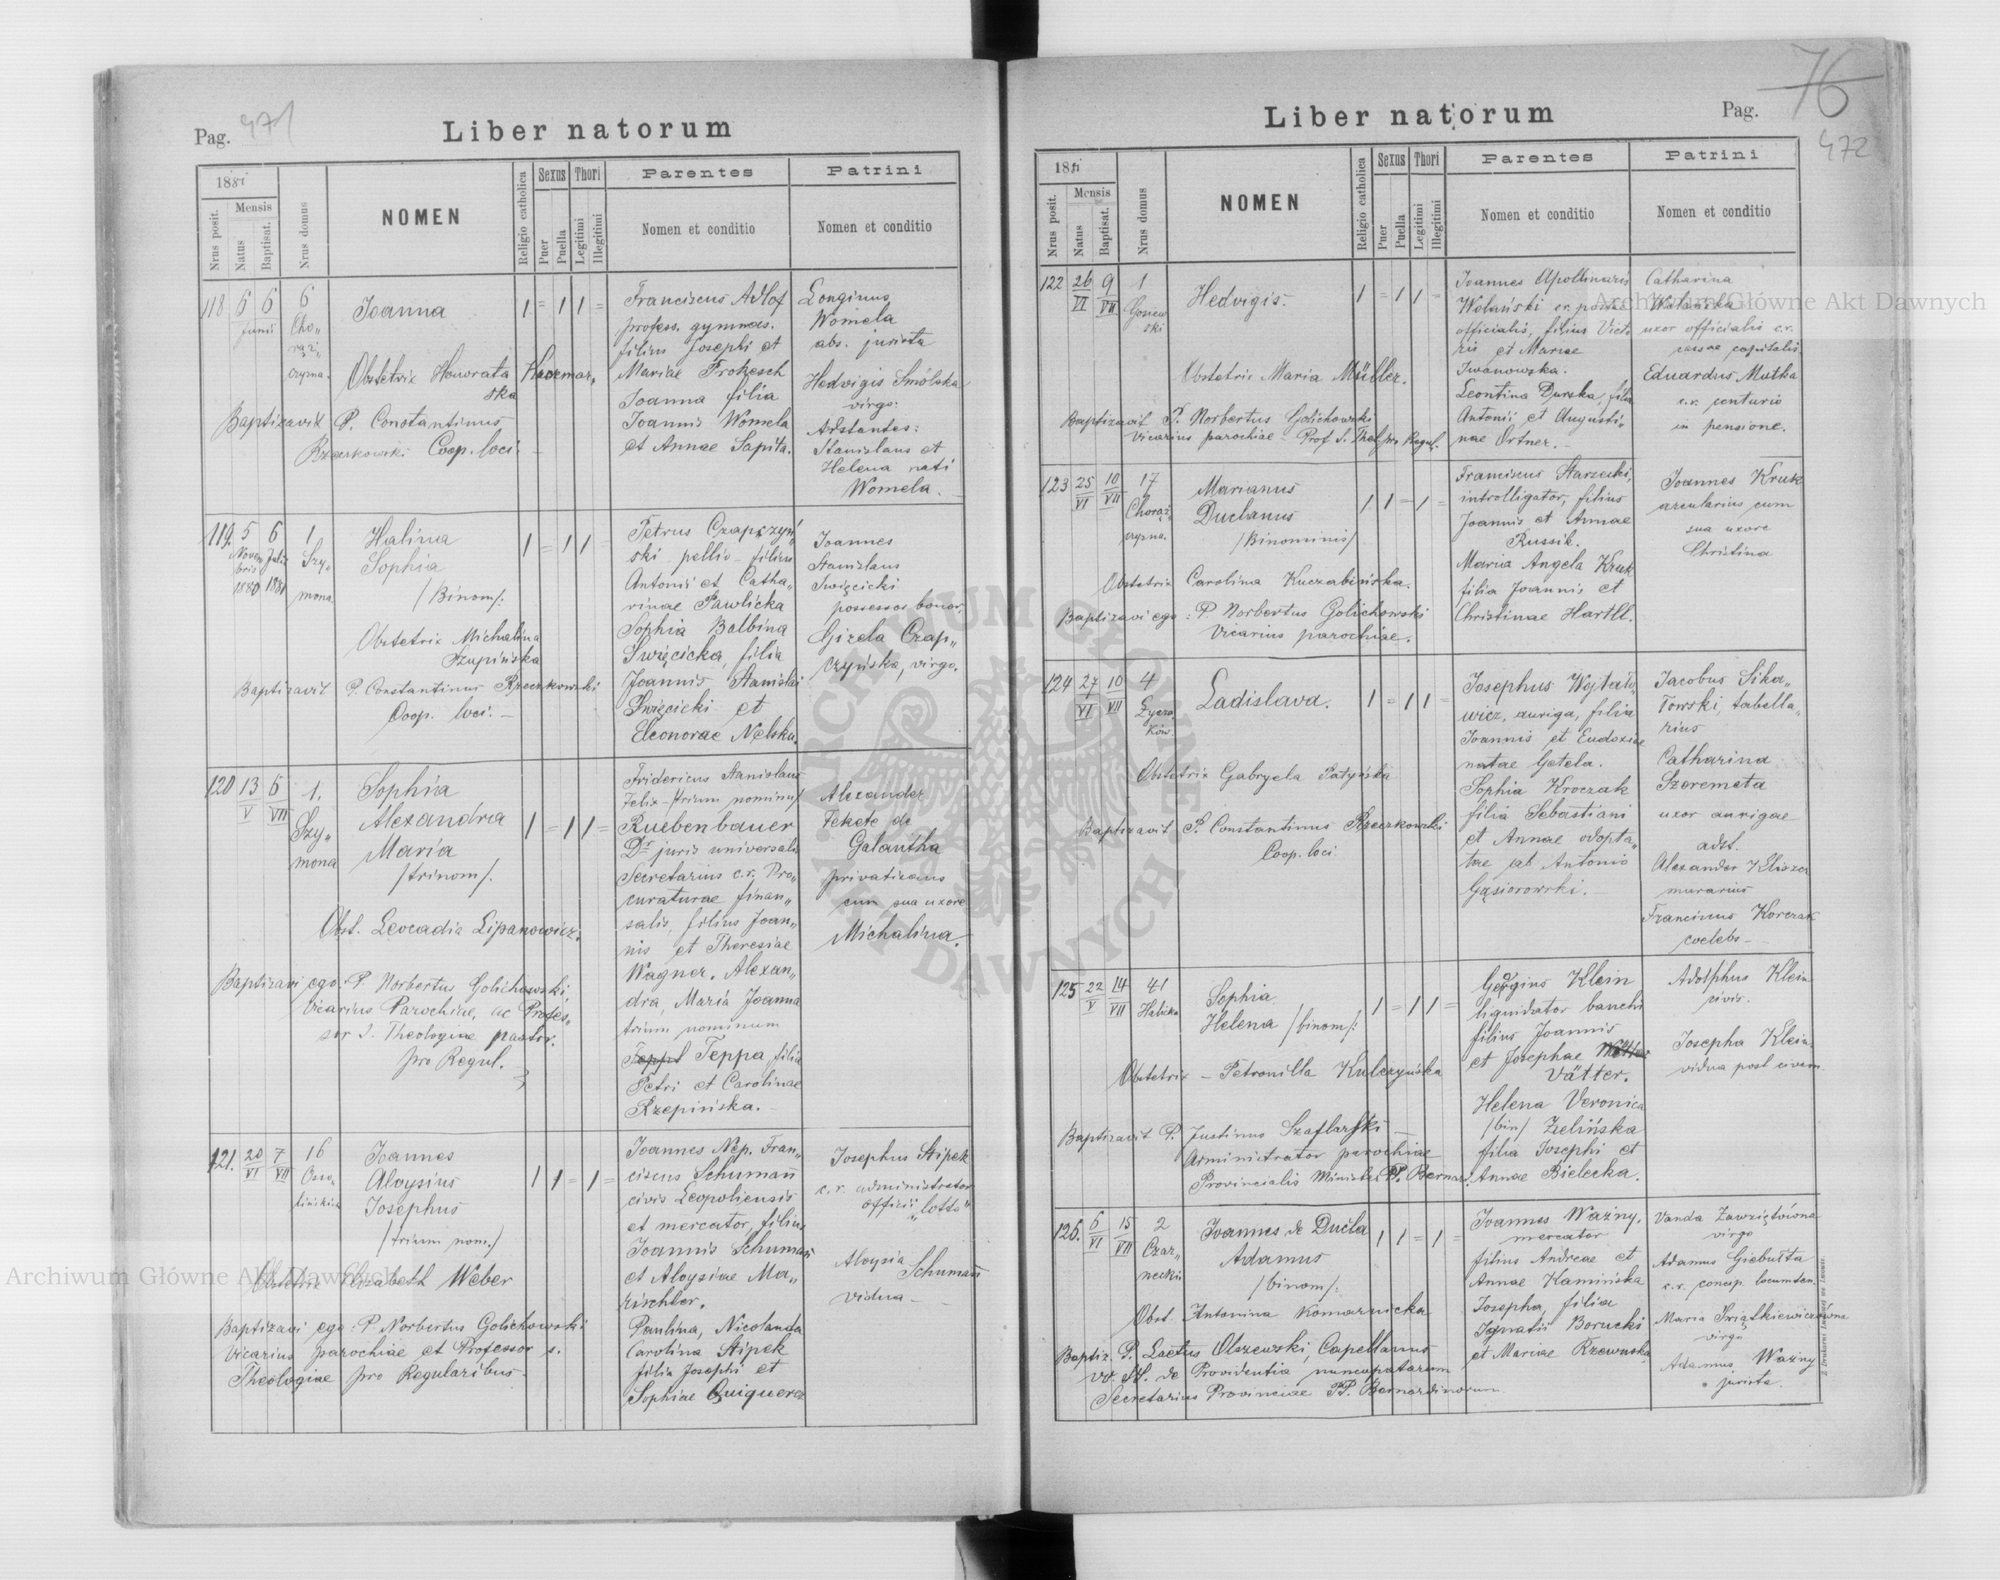 Pag. 471
Liber natorum
1881
Nrus posit.
Mensis
Natus
Baptisat.
Nrus domus
NOMEN
Religio catholica
Sexus
Puer
Puella
Thori
Legitimi
Illegitimi
Parentes
Nomen et conditio
Patrini
Nomen et conditio
118 6 6 6
Junii
Cho„
rąż„
czyzna.
Joanna
1 = 1 1 =
Obstetrix Honorata Kaczmar„
ska
Baptizavit P. Constantinus
Rzeczkowski Coop. loci.
Franciscus Adlof
profess. gymnas.
filius Josephi et
Mariae Prokesch
Joanna filia
Joannis Womela
et Annae Sapita.
Longinus
Womela
abs. jurista
Hedvigis Smólska
virgo.
Adstantes:
Stanislaus et
Helena nati
Womela.
119. 5 6 1
Novem
bris Julii
1880 1881
Szy„
mona.
Halina
Sophia
/Binom/:
1 = 1 1 =
Obstetrix Michalina
Szupińska
Baptizavit P. Constantinus Rzeczkowski
Coop. loci.
Petrus Czapczyń„
ski pellio filius
Antonii et Catha„
rinae Pawlicka
Sophia Balbina
Swięcicka, filia
Joannis Stanislai
Swięcicki et
Eleonorae Nelska.
Joannes
Stanislaus
Swięcicki
possessor bonor.
Gizela Czap„
czyńska, virgo.
120 13 6 1.
V VII
Szy„
mona
Sophia
Alexandra
Maria
/trinom/.
1 = 1 1 =
Obst. Leocadia Lipanowicz.
Baptizavi ego P. Norbertus Golichowski
Vicarius Parochiae, ac Profes„
sor S. Theologiae pastor.
pro Regul.
Fridericus Stanislaus
Felix /trium nominum/
Ruebenbauer
Dr. juris universalis
Secretarius c.r. Pro„
curaturae finan„
salis, filius Joan„
nis et Theresiae
Wagner. Alexan„
dra, Maria Joanna
trium nominum
Teppa, filia
Petri et Carolinae
Rzepińska.
Alexander
Fekete de
Galántha
privatizans
cum sua uxore
Michalina.
121. 20 7 16
VI VII
Osso„
lińskich
Joannes
Aloysius
Josephus
/trium nom./
1 1 = 1 =
Obstetrix Elisabeth Weber
Baptizavi ego: P. Norbertus Golichowski
Vicarius parochiae et Professor s.
Theologiae pro Regularibus.
Joannes Nep. Fran„
ciscus Schumañ
civis Leopoliensis
et mercator, filius
Joannis Schumañ
et Aloysiae Ma„
rischler.
Paulina, Nicolanda
Carolina Stipek
filia Josephi et
Sophiae Quiquerez
Josephus Stipek
c.r. administrator
officii „lotto"
Aloysia
Schumañ
vidua
76
Liber natorum
Pag. 472
1881
Nrus posit.
Mensis
Natus
Baptisat.
Nrus domus
NOMEN
Religio catholica
Sexus
Puer
Puella
Thori
Legitimi
Illegitimi
Parentes
Nomen et conditio
Patrini
Nomen et conditio
122 26 9 1
VI VII
Hedvigis.
1 = 1 1 =
Obstetrix Maria Müller.
Baptizavit P. Norbertus Golichowski
Vicarius parochiae Prof S. Theol. pro Regul.
Joannes Apollinaris
Wolański c.r. postae
officialis, filius Victo
ris et Mariae
Iwanowska.
Leontina Durska, filia
Antonii et Augusti„
nae Ortner.
Catharina
Wolańska
uxor officialis c.r.
cassae capitalis.
Eduardus Mutka
c.r. centurio
in pensione.
123 25 10 17
VI VII
Chorąż„
czyzna.
Marianus
Duclanus
/Binominis/
1 1 = 1 =
Obstetrix Carolina Kuczabińska.
Baptizavi ego: P. Norbertus Golichowski
Vicarius parochiae.
Franciscus Starzecki,
introlligator, filius
Joannis et Annae
Russik.
Maria Angela Kruk
filia Joannis et
Christinae Hartll.
Joannes Kruk
arcularius cum
sua uxore
Christina
124 27 10 4
VI VII
Łycza
ków
Ladislava.
1 = 1 1 =
Obstetrix Gabryela Patyńska
Baptizavit P. Constantinus Rzeczkowski
Coop. loci
Josephus Wojtało
wicz, auriga, filius
Joannis et Eudoxiae
natae Getela.
Sophia Kroczak
filia Sebastiani
et Annae adopta„
tae ab Antonio
Gąsiorowski.
Jacobus Sika„
Towski, tabella„
rius
Catharina
Szeremeta
uxor aurigae
adst.
Alexander Kliszcz
murarius
Francisnus Korczak
coelebs
125 22 14 41
V VII
Halicka
Sophia
Helena /binom/:
1 = 1 1 =
Obstetrix – Petronilla Kulczyńska
Baptizavit P. Justinus Szaflarski
Administrator parochiae
Provincialis Minister PP. Bernar.
Georgius Klein
liquidator banchi
filius Joannis
et Josephae
Vätter.
Helena Veronica
/bin/ Zielińska
filia Josephi et
Annae Bielecka.
Adolphus Klein
civis.
Josepha Klein
vidua post civem
126. 6 15 2
VI VII
Czar„
necki
Joannes de Ducla
Adamus
/binom/:
1 1 = 1 =
Obst. Antonina Komarnicka
Baptiz. P. Laetus Olszewski, Capellanus
VV. SS. de Providentia nuncupatarum
Secretarius Provinciae PP. Bernardinorum
Joannes Ważny.
mercator
filius Andreae et
Annae Kamińska
Josepha, filia
Ignatii Borucki
et Mariae Rzewuska
Vanda Zawziętówna
virgo
Adamus Giebułta
c.r. concip. locumten.
Maria Swiątkiewiczówna
virgo
Adamus Ważny
jurista.
Archiwum Główne Akt Dawnych
Archiwum Główne Akt Dawnych
ARCHIWUM GŁÓWNE AKT DAWNYCH